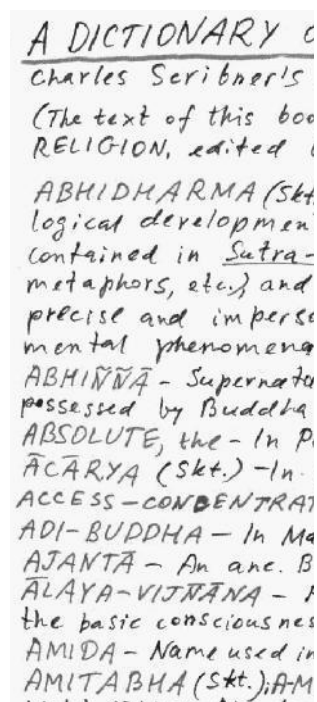 A DICTIONARY
Charles Scribner's
(The text of this
RELIGION, edited
ABHIDHARMA (Skt.
logical
contained in Sutra-
metaphors, etc.) and
precise and
mental phenomena
ABHIÑÑĀ -
possessed by Buddha
ABSOLUTE, the - In
ĀCĀRYA (Skt.) - In
ACCESS-CONCENTRAT
ADI-BUDDHA - In
AJANTĀ - An anc. B
ĀLAYA-VIJÑĀNA -
the basic
AMIDA - Name used in
AMITABHA (Skt.); AM